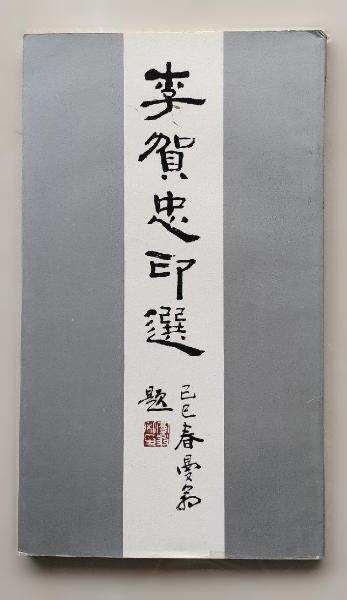 李賀忠印選
己巳春曼翁
題